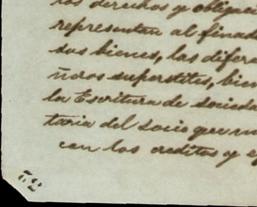 los derechos y obligaci
representan al finad
sus bienes, las difer
ñores superstites, bien
la Escritura de socieda
taria del socio que m
con los creditos y e
52